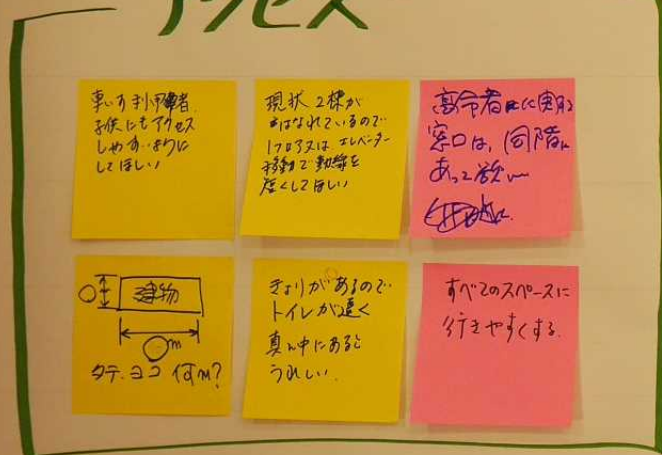 アクセス
車いす利用者
子供にもアクセス
しやすいように
してほしい
現状 2棟が
はなれているので
1フロア又は エレベーター
移動で動線を
短くしてほしい
高令者
窓口は、同階に
あって欲しい
建物
○
○m
タテ.ヨコ 何m?
きょりがあるので
トイレが遠く
真ん中にあると
うれしい.
すべてのスペースに
行きやすくする.